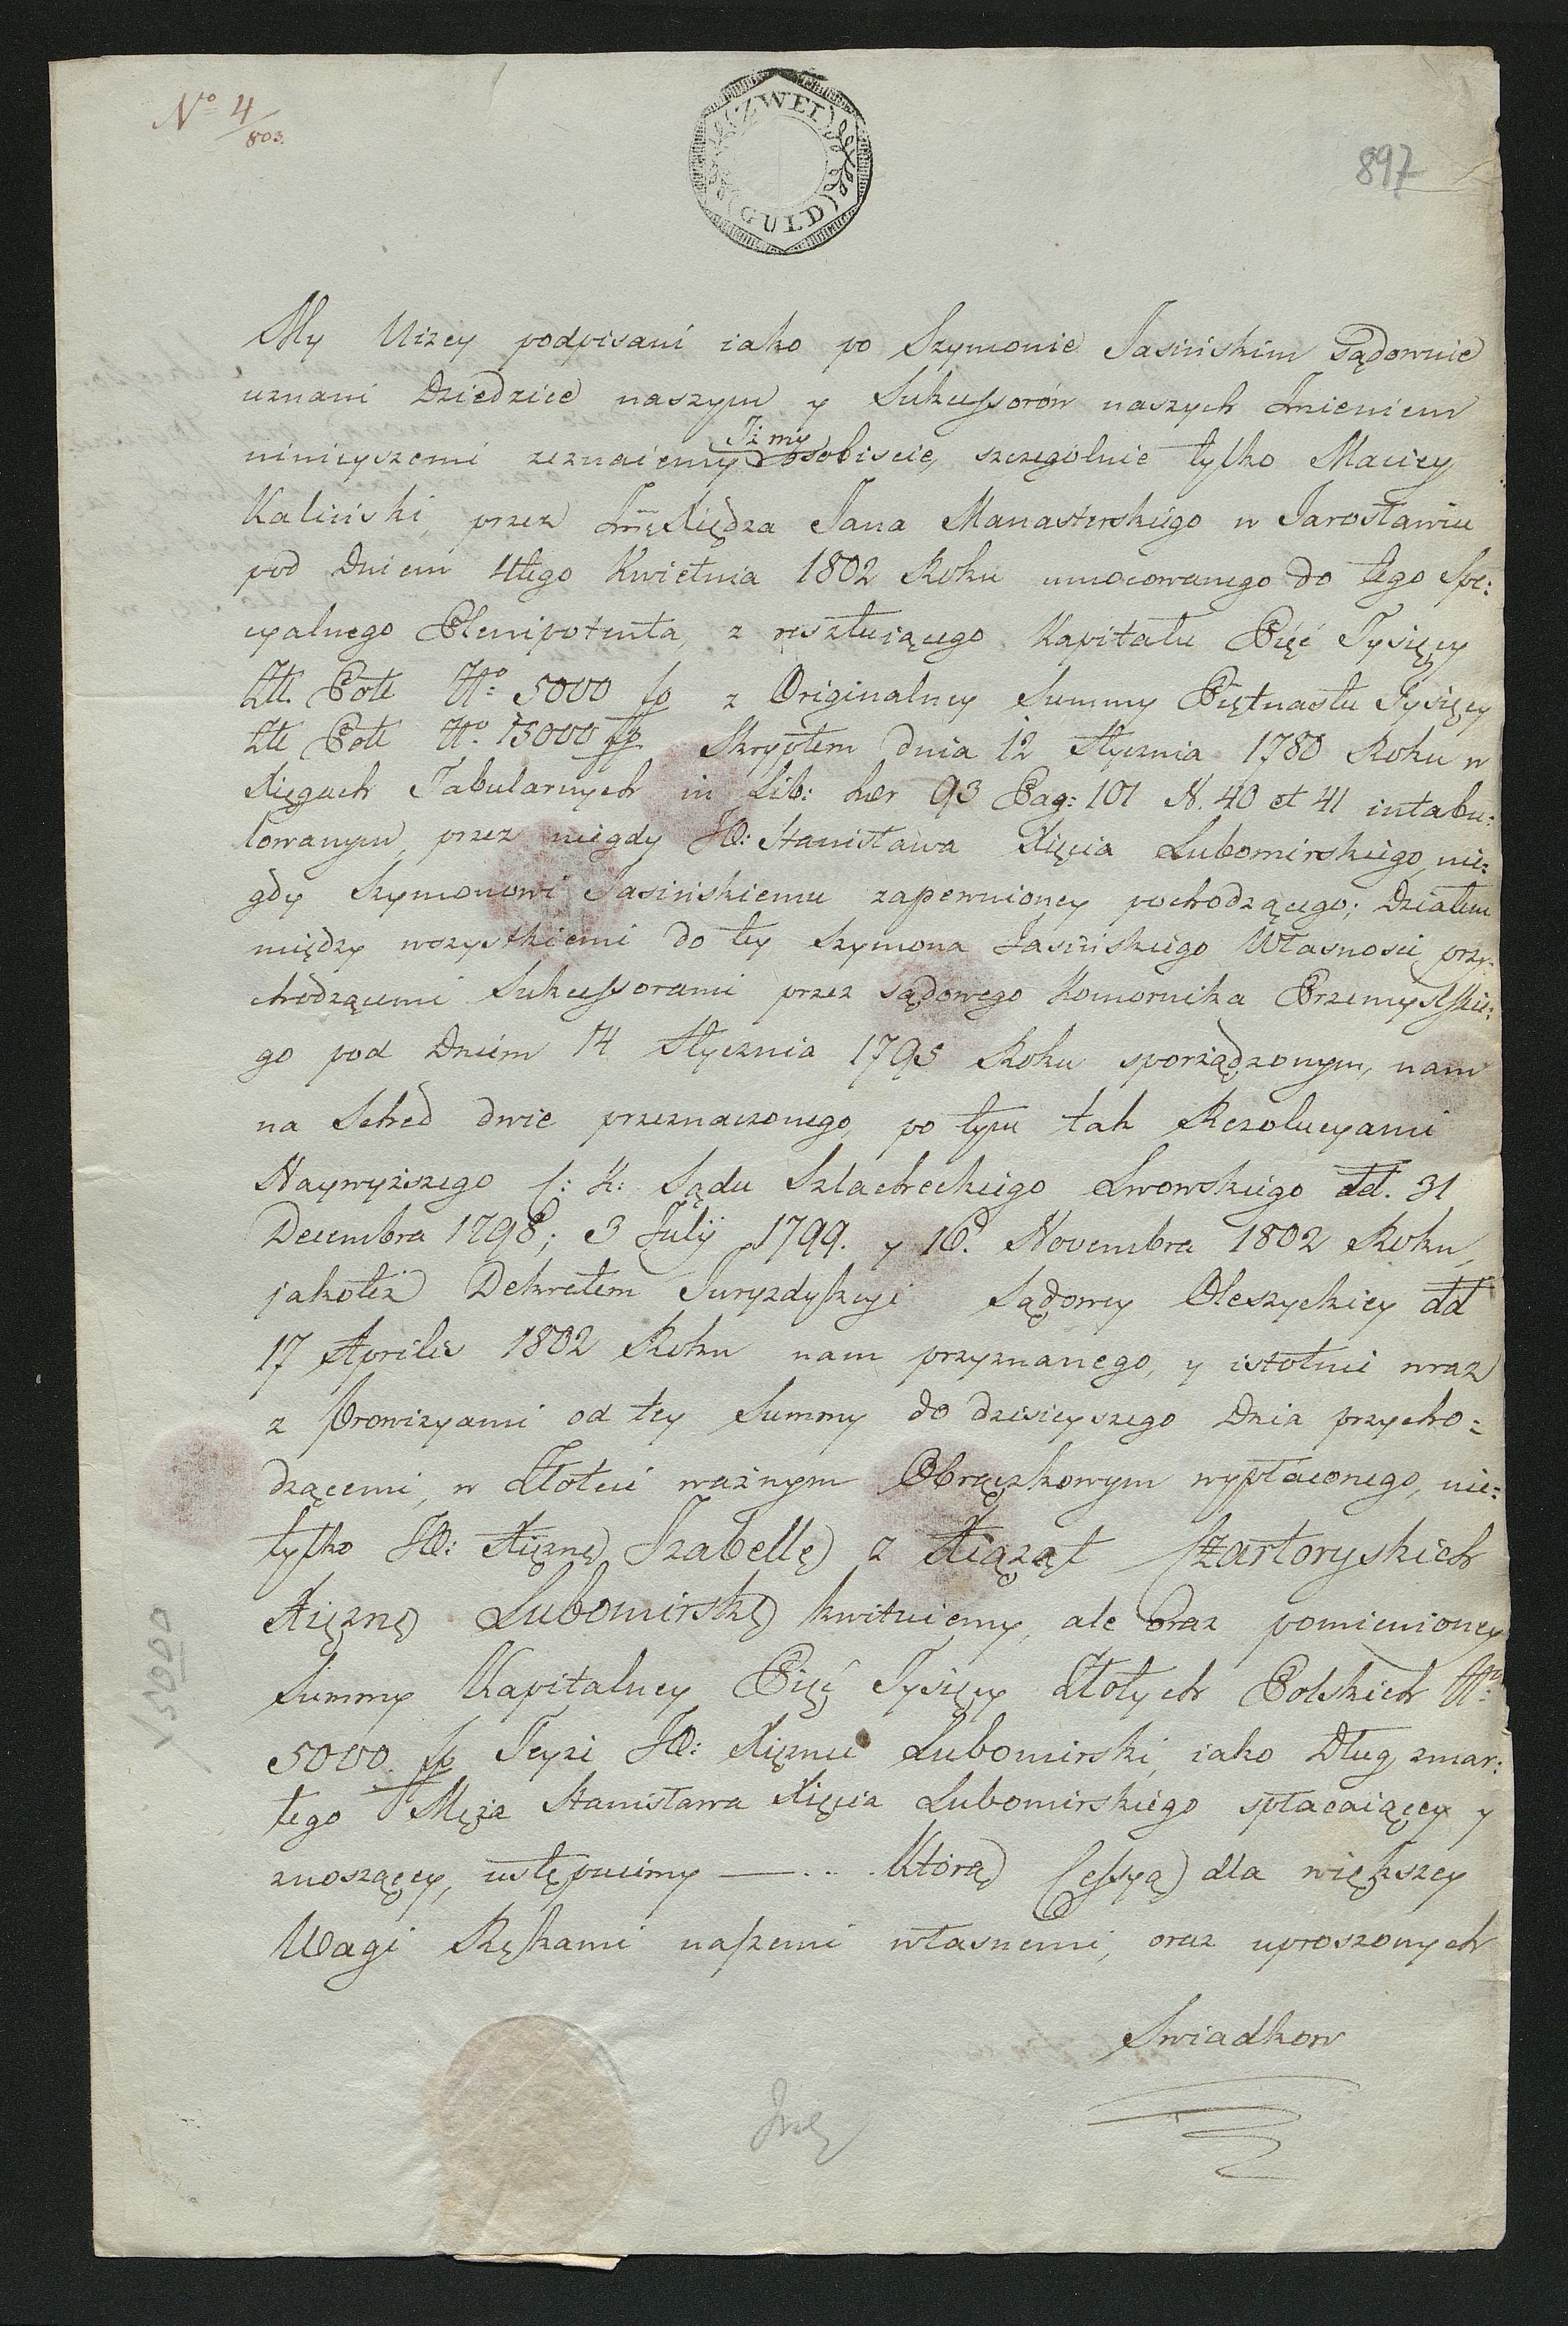 No 4/803.
ZWEI
GULD
897
My Niżey podpisani iako po Szymonie Jasińskim Sądownie
uznani Dziedzice naszym y Sukcessorów naszych Imieniem
ninieyszemi zeznaiemy Iż my osobiscie, szczegolnie tylko Maciey
Kaliński, przez Xiędza Jana Manasterskiego w Jarosławiu
pod Dniem 4tego Kwietnia 1802 Roku umocowanego do tego Spe:
cyalnego Plenipotenta, z resztuiącego Kapitału Pięć Tysięcy
Złł. Poll No 5000 fp z Originalney Summy Piętnastu Tysięcy
Złł Poll No. 15000 fp Skryptem dnia 12 Stycznia 1780 Roku w
Xięgach Tabularnych in Lib: hær 93 Pag: 101 N. 40 et 41 intabu:
lowanym, przez niegdy JO: Stanisława Xięcia Lubomirskiego, nie:
gdy Szymonowi Jasińskiemu zapewnioney pochodzącego; Działem
między wszystkiemi do tey Szymona Jasińskiego Własnosci przy:
chodzącemi Sukcessorami przez Sądowego Komornika Przemyslskie:
go pod Dniem 14 Stycznia 1795 Roku sporządzonym, nam
na Sched dwie przeznaczonego, po tym tak Rezolucyami
Naywyższego C: K: Sądu Szlacheckiego Lwowskiego dd. 31
Decembra 1798; 3 Julÿ 1799. y 16. Novembra 1802 Roku,
jakoteż Dekretem Juryzdykcyi Sądowey Oleszyckiey dd
17 Aprilis 1802 Roku nam przyznanego, y istotnie wraz
z Prowizyami od tey Summy do dzisieyszego Dnia przycho:
dzącemi, w Złotcie ważnym Obrączkowym wypłaconego, nie:
tylko JO: Xiężnę Izabellę z Xiążąt Czartoryskich
Xiężnę Lubomirskę kwituiemy, ale oraz pomienioney
Summy Kapitalney Pięć Tysięcy Złotych Polskich No
5000. fp Teyże JO: Xiężnie Lubomirski, iako Dług zmar:
łego Męża Stanisława Xięcia Lubomirskiego spłacaiącey y
znoszącey, ustępuiemy —. .. Którą Cessyą dla większey
Wagi Rękami naszemi własnemi, oraz uproszonych
Swiadkow
15000